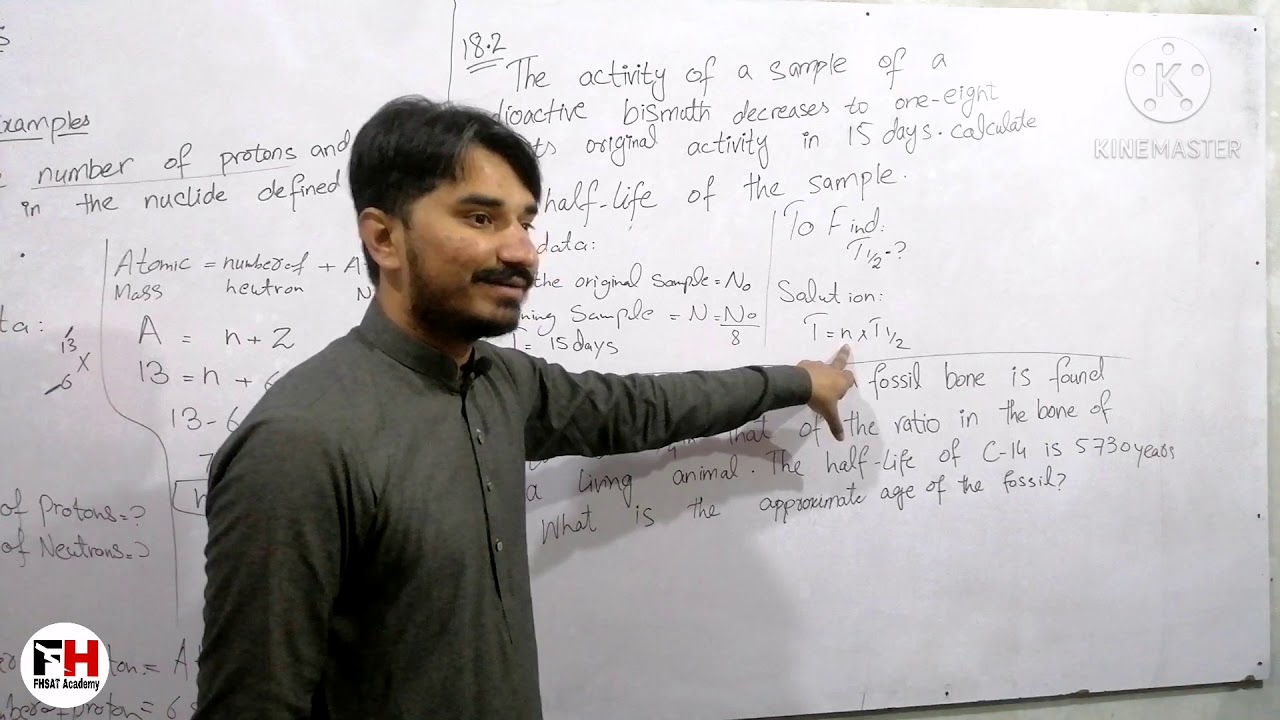 Examples
number of protons and
in the nuclide defined
Atomic = number of + A
Mass neutron N
A = n + Z
13 = n + 6
13 - 6
13
X
6
of Protons = ?
of Neutrons = ?
proton = 6
18.2
The activity of a sample of a
dioactive bismath decreases to one-eight
ts original activity in 15 days. calculate
half-life of the sample.
data:
the original sample = No
Sample = N = No/8
T = 15 days
To Find:
T1/2 - ?
Salution:
T = n x T1/2
fossil bone is found
that of the ratio in the bone of
a living animal. The half-life of C-14 is 5730 years
What is the approximate age of the fossil?
K
KINEMASTER
FH
FHSAT Academy